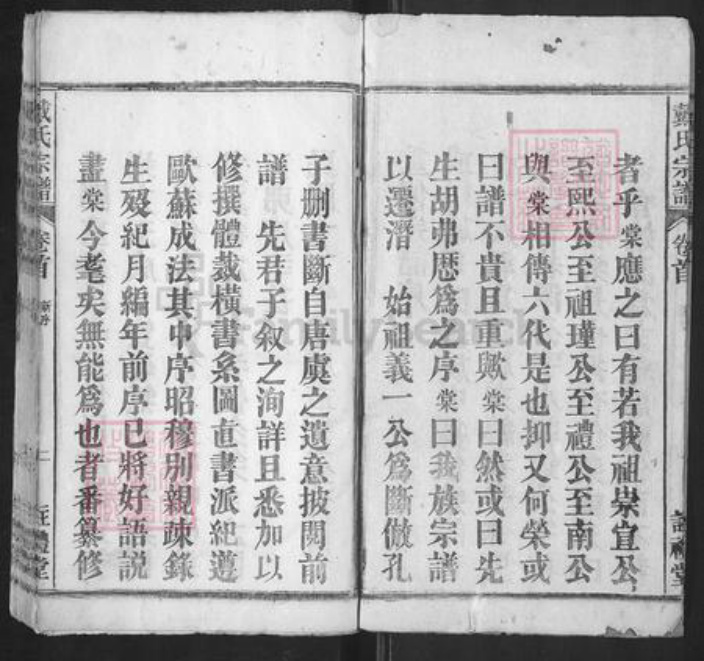 戴氏宗譜
卷首
者乎棠應之曰有若我祖崇宜公
至熙公至祖瑾公至禮公至南公
與棠相傳六代是也抑又何榮或
曰譜不貴且重歟棠曰然或曰先
生胡弗歴爲之序棠曰我族宗譜
以遷潛 始祖義一公爲斷倣孔
子删書斷自唐虞之遺意披閱前
譜 先君子叙之洵詳且悉加以
修撰體裁橫書系圖直書派紀遵
歐蘇成法其中序昭穆别親疎錄
生殁紀月編年前序已將好語説
盡棠今耄矣無能爲也者番纂修
戴氏宗譜
卷首
FamilySearch